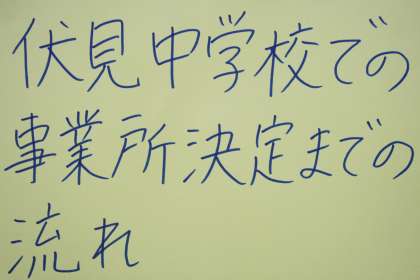 伏見中学校での
事業所決定までの
流れ